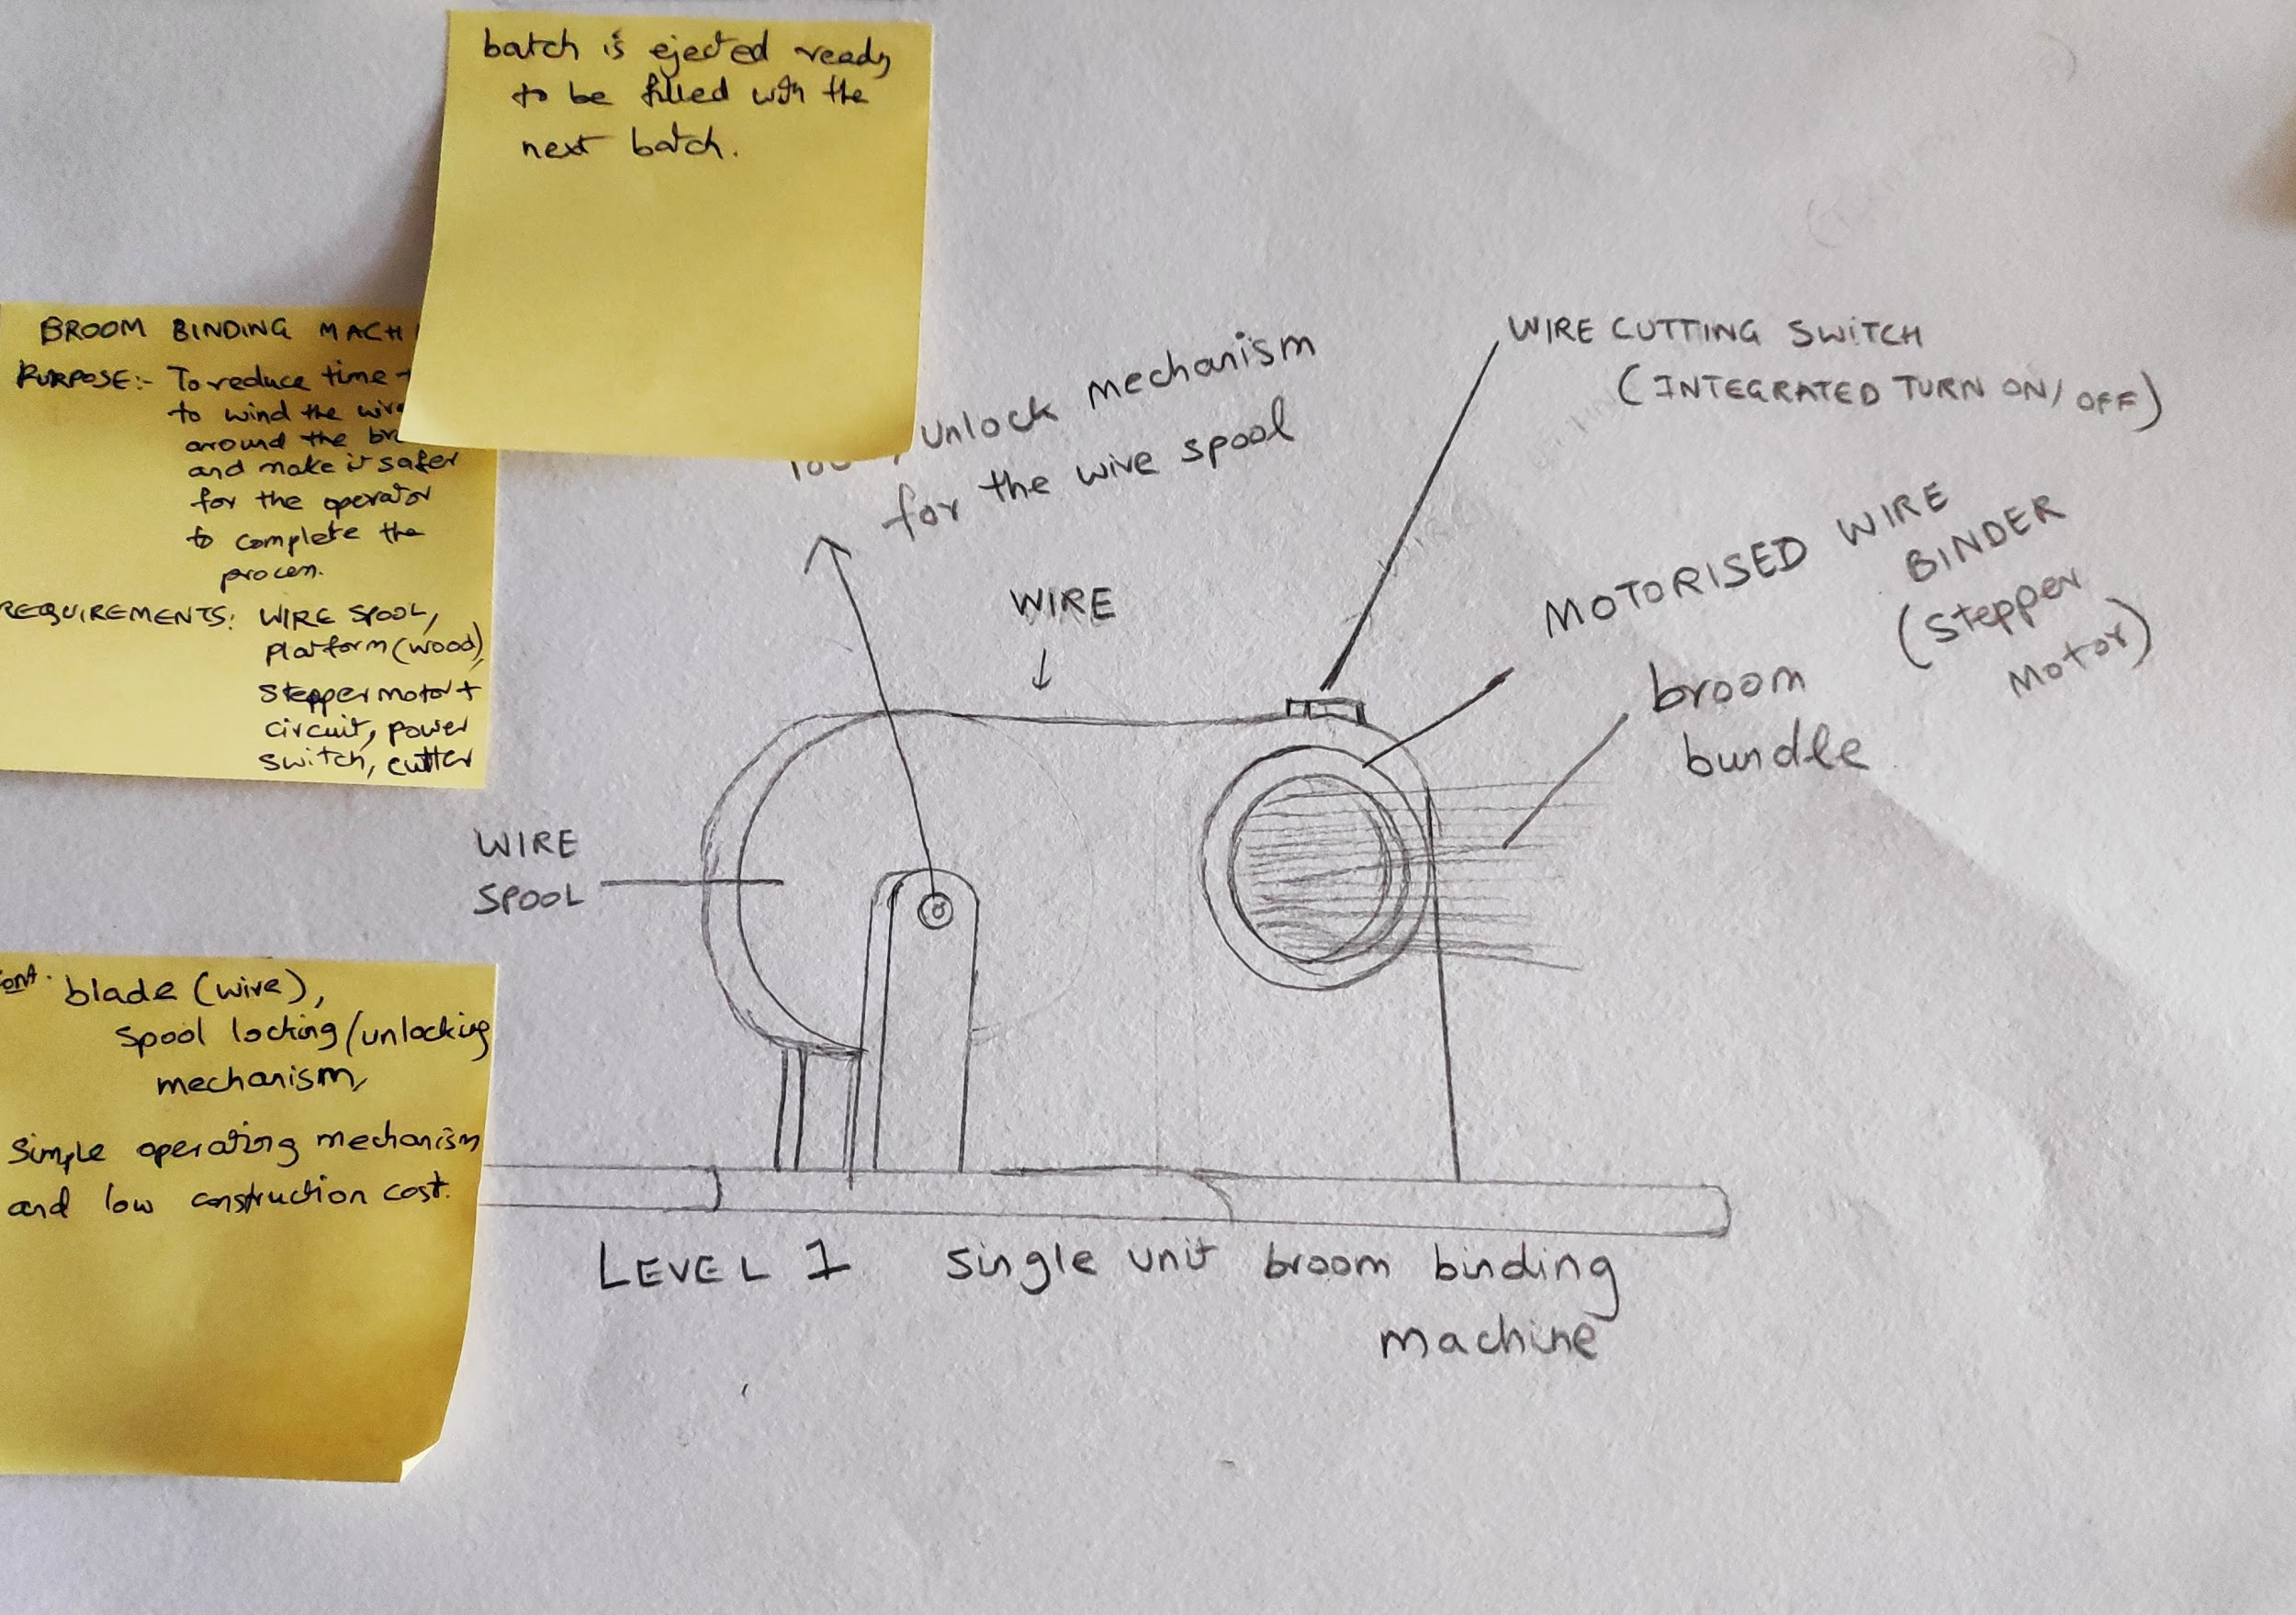 batch is ejected ready
to be filled with the
next batch.
BROOM BINDING MACHI
PURPOSE:- To reduce time
to wind the wire
around the br
and make it safer
for the operator
to complete the
process.
REQUIREMENTS: WIRE SPOOL,
Platform (wood),
Stepper motor +
circuit, power
switch, cutter
cont. blade (wire),
Spool locking/unlocking
mechanism,
Simple operating mechanism
and low construction cost.
unlock mechanism
for the wire spool
WIRE CUTTING SWITCH
(INTEGRATED TURN ON/OFF)
WIRE
MOTORISED WIRE
BINDER
(Stepper
Motor)
broom
bundle
WIRE
SPOOL
LEVEL 1 Single unit broom binding
machine